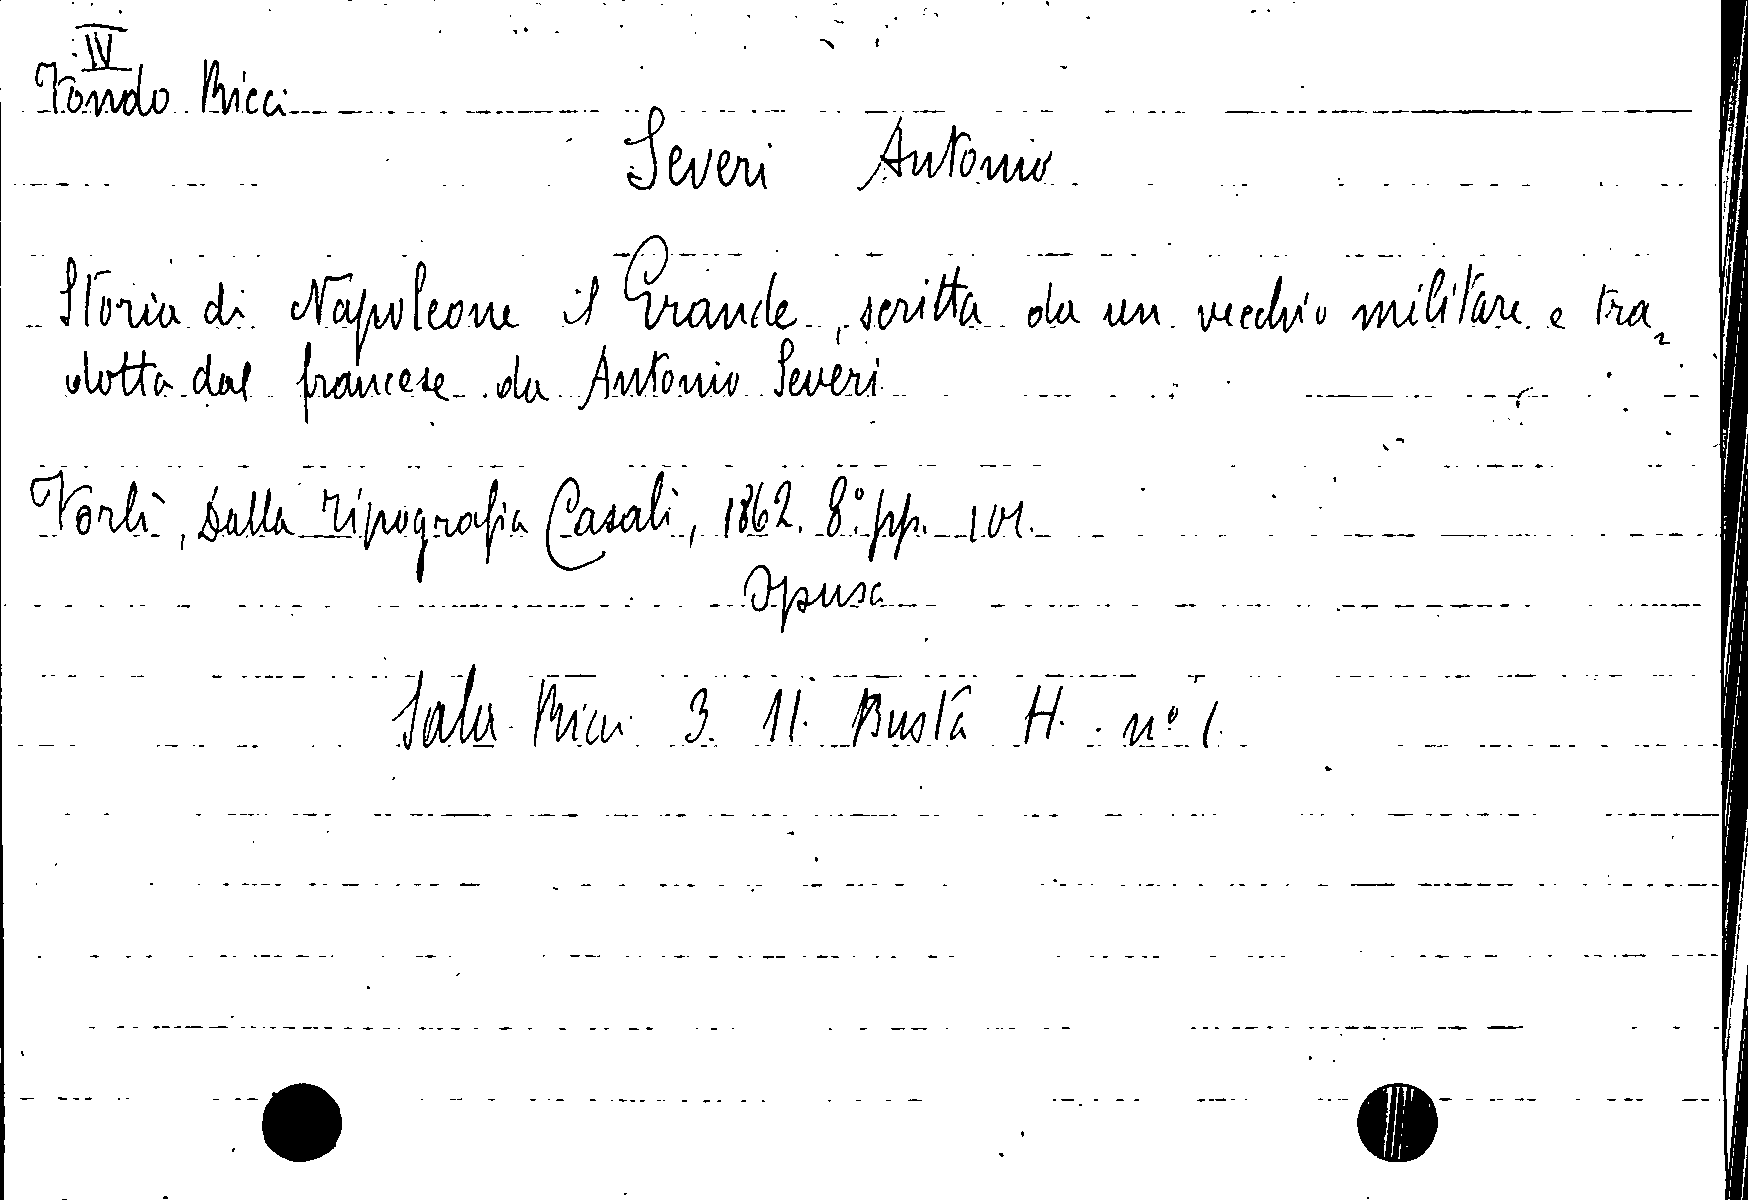 IV
Fondo Ricci
Severi Antonio
Storia di Napoleone il Grande, scritta da un vecchio militare e tra=
dotta dal francese da Antonio Severi
Forlì, Dalla Tipografia Casali, 1862. 8.° pp. 101.
Opusc
Sala Ricci 3. 11. Busta H. n° 1.